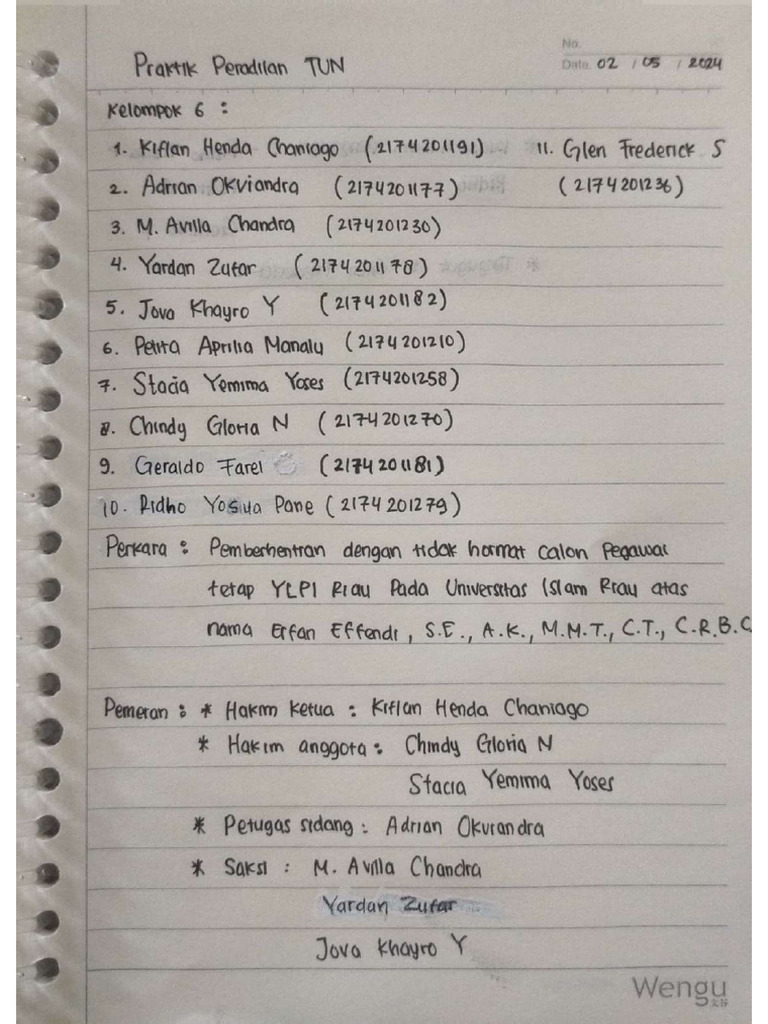 Praktik Peradilan TUN
No.
Date. 02 / 05 / 2024
Kelompok 6 :
1. Kiflan Henda Chaniago (2174201191) 11. Glen Frederick S
2. Adrian Okviandra (2174201177) (2174201236)
3. M. Avilla Chandra (2174201230)
4. Yardan Zufar (2174201178)
5. Jova Khayro Y (2174201182)
6. Pelita Aprilia Manalu (2174201210)
7. Stacia Yemima Yoses (2174201258)
8. Chindy Gloria N (2174201270)
9. Geraldo Farel (2174201181)
10. Ridho Yosua Pane (2174201279)
Perkara : Pemberhentian dengan tidak hormat calon Pegawai
tetap YLPI Riau Pada Universitas Islam Riau atas
nama Erfan Effendi, S.E., A.K., M.M.T., C.T., C.R.B.C
Pemeran : * Hakim Ketua : Kiflan Henda Chaniago
* Hakim anggota : Chindy Gloria N
Stacia Yemima Yoses
* Petugas sidang : Adrian Okviandra
* Saksi : M. Avilla Chandra
Yardan Zufar
Jova Khayro Y
Wengu
文谷